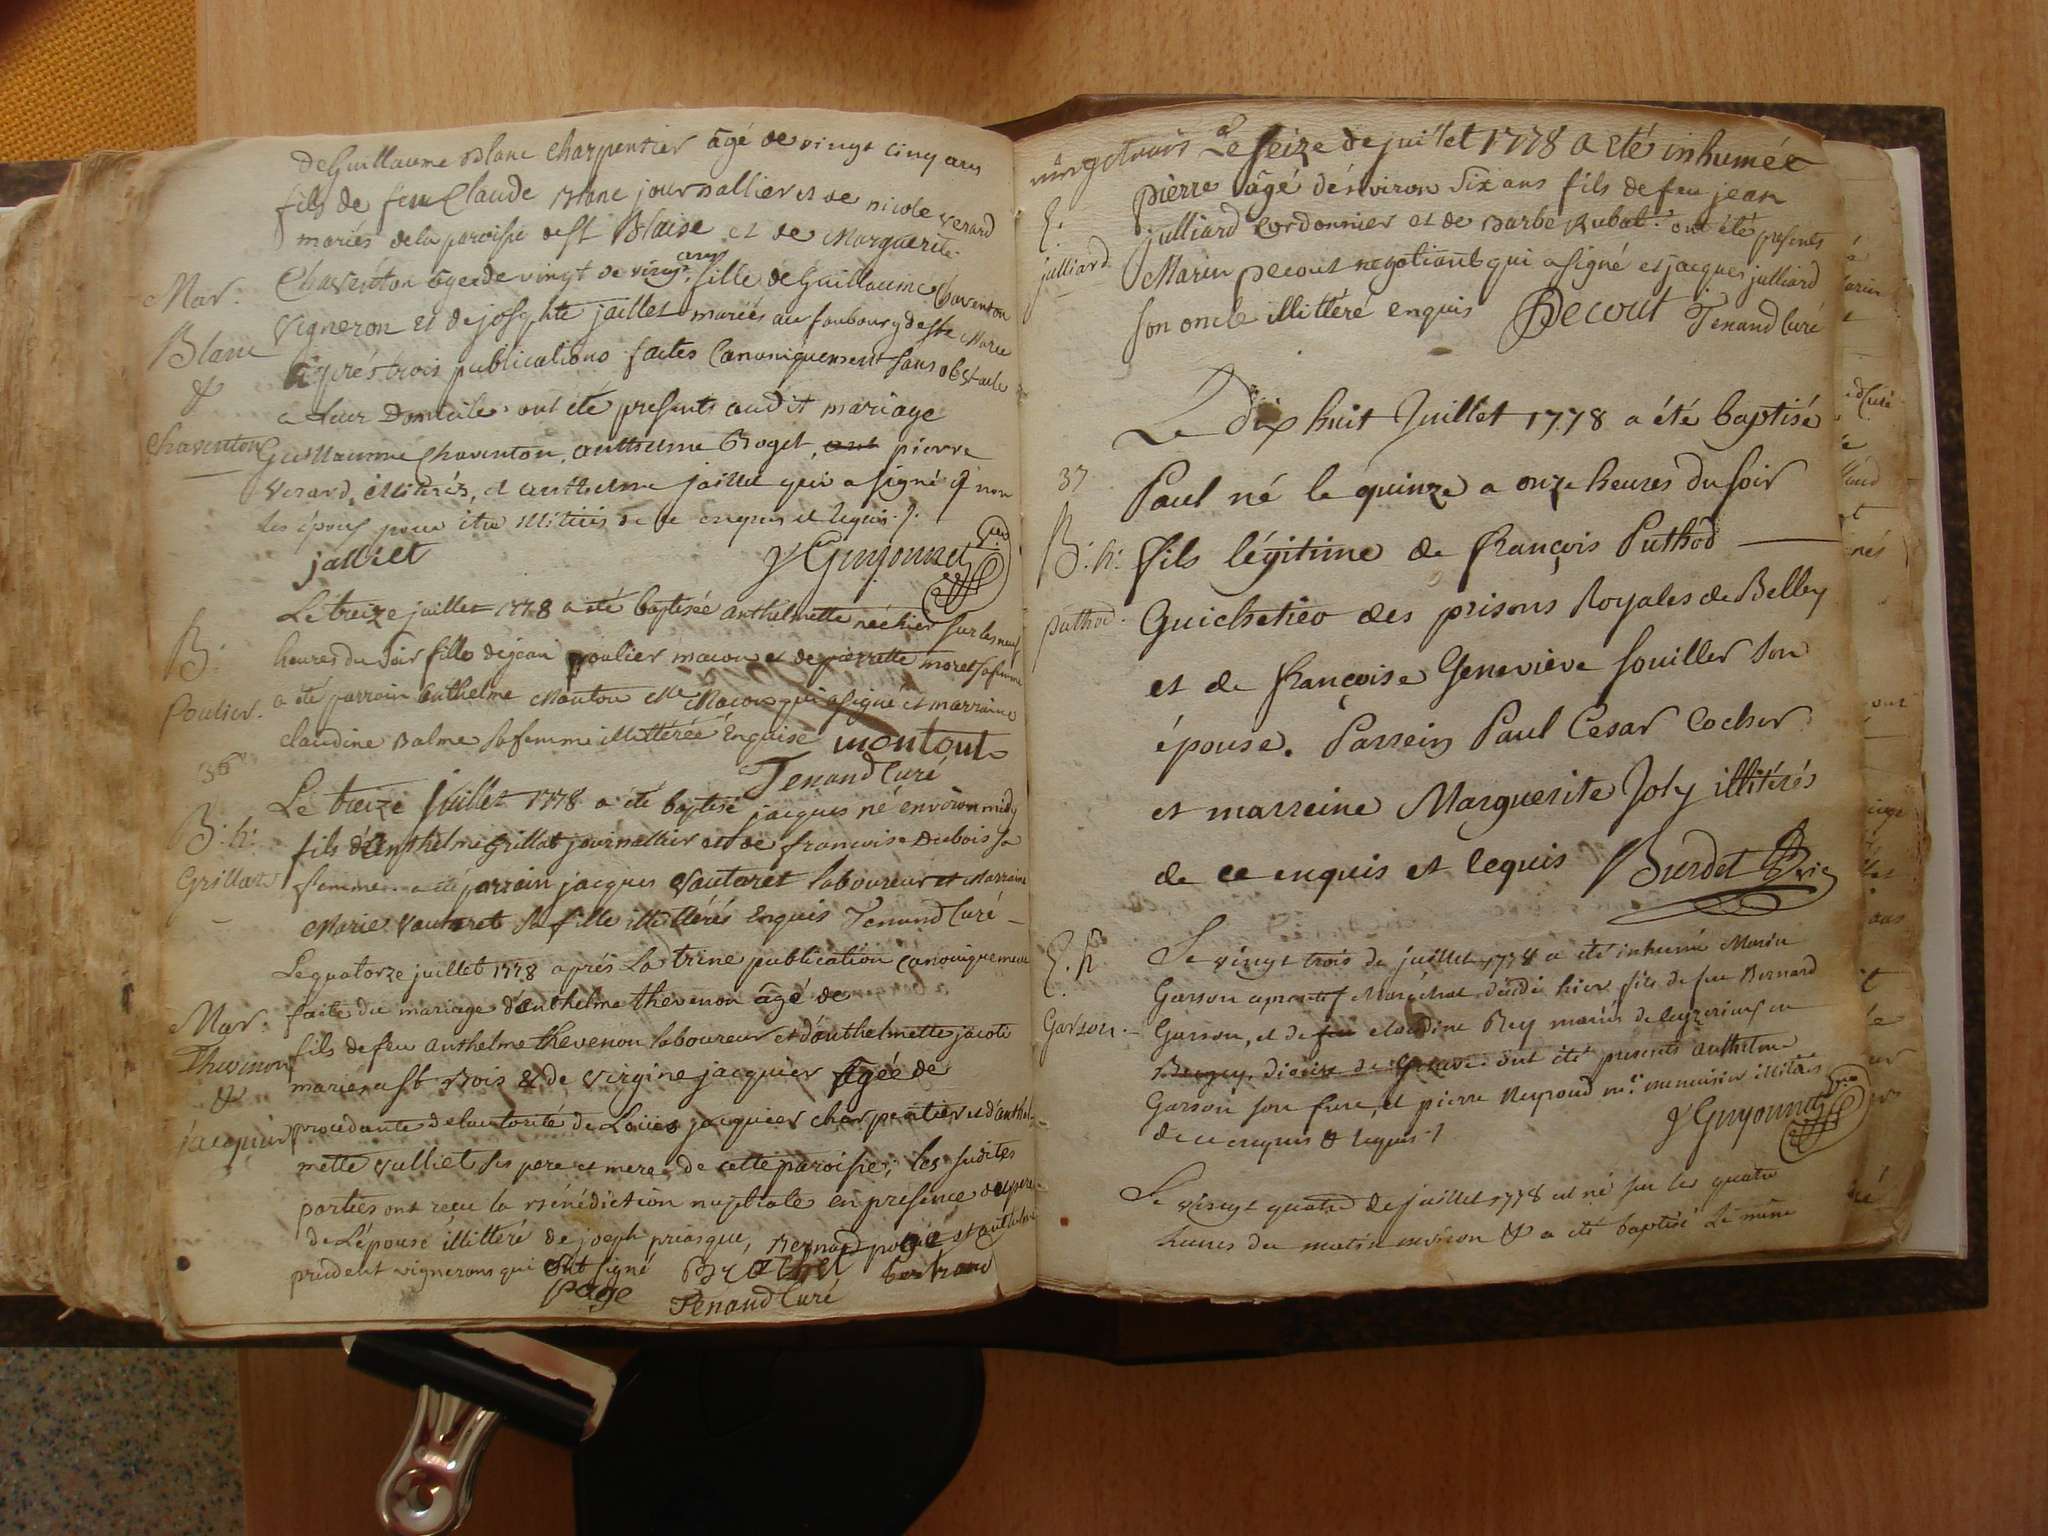 de Guillaume Blanc charpentier âgé de vingt cinq ans
fils de feu Claude Blanc journallier et de nicole verard
mariés de la paroisse de St Blaise et de Marguerite
Mar:
Chaventon agée de vingt de vingt ans fille de Guillaume Chaventon
Vigneron et de josephte jaillet mariés au faubourg de Ste Marie
Blanc
après trois publications faites Canoniquement sans obstacle
&
a leur Domicile ont été presents audit mariage
Chaventon
Guillaume Chaventon, anthelme Roget, pierre
verard, illitérés, et anthelme jaillet qui a signé & non
les époux pour être illitérés de ce enquis et requis
jaillet Guyonnet
Le treize juillet 1778 a été baptisée anthelmette née hier sur les neuf
B:
heures du Soir fille de jean poulier macon et de pierrette moret sa femme
Poulier.
a été parrain anthelme Montou Me Macon qui a signé et marraine
claudine Balme sa femme illitterée Enquise montout
36
Tenand Curé
Le treize juillet 1778 a été baptisé jacques né environ midy
B: h:
fils d'anthelme Grillat journallier et de francoise Dubois sa
Grillat
femme a été parrain jacques Vautaret laboureur et Marraine
Marie Vautaret sa fille illittérés Enquis Tenand Curé
Le quatorze juillet 1778 après La trine publication canoniquement
Mar:
faite du mariage d'anthelme thevenon âgé de
Thevenon
fils de feu anthelme thevenon laboureur et d'anthelmette jacoti
&
mariés a St Bois & de Virgine jacquier agée de
jacquier
procedante de l'autorité de Louis jacquier charpentier et d'anthel-
mette vulliet ses pere et mere de cette paroisse; les susdites
parties ont recu la Bénédiction nuptiale en presence du pere
de L'épouse illitteré de joseph priasque, Bernard page et anthelme
prudent vignerons qui ont signé
page Tenand Curé bertrand
vingt trois Le seize de juillet 1778 a été inhumée
pierre âgé d'environ Six ans fils de feu jean
E.
julliard Cordonnier et de Barbe Rubat. ont été presents
julliard
Marin Decout negotiant qui a signé et jacques julliard
son oncle illitteré enquis Decout Tenand Curé
Le dix huit Juillet 1778 a été baptisé
37
Paul né le quinze a onze heures du soir
B: h:
fils légitime de françois Puthod
puthod.
Guichetier des prisons Royales de Belley
et de françoise Geneviève Souiller son
épouse. Parrein Paul Cesar Cocher
et marreine Marguerite Joly illitérés
de ce enquis et requis Burdet Vic
Le vingt trois de juillet 1778 a été inhumé Marin
E. h
Garson aprentif Maréchal décédé hier fils de feu Bernard
Garson
Garson, et de feu claudine Rey mariés de en
Bugey, diocèse de Geneve. ont été presents anthelme
Garson son frere, et pierre Reyroud me menuisier illitérés
de ce enquis & requis Guyonnet
Le vingt quatre de juillet 1778 est né sur les quatre
heures du matin environ & a été baptisé Le même